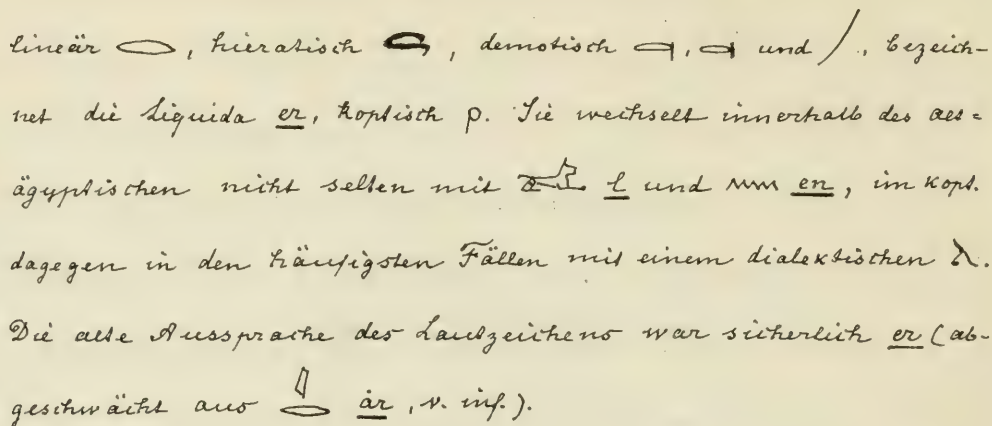 lineär 𓂋, hieratisch , demotisch , und /, bezeich-
net die Liquida er, koptisch ⲣ. Sie wechselt innerhalb des alt=
ägyptischen nicht selten mit 𓃭 l und 𓈖 en, im kopt.
dagegen in den häufigsten Fällen mit einem dialektischen ⲗ.
Die alte Aussprache des Lautzeichens war sicherlich er (ab-
geschwächt aus 𓇋𓂋 ȧr, v. inf.).